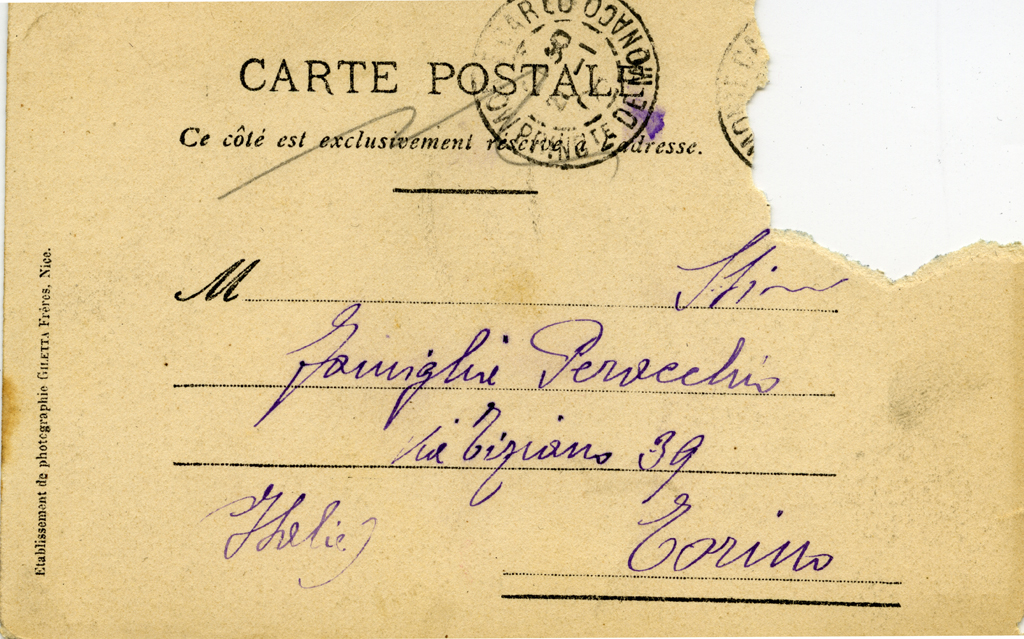 MONTE CARLO
PRINCTE DE MONACO
CARTE POSTALE
Ce côté est exclusivement réservé à l'adresse.
M
Famiglia Perocchio
Via Tiziano 39
Italie
Torino
Etablissement de photographie GILETTA Frères, Nice.